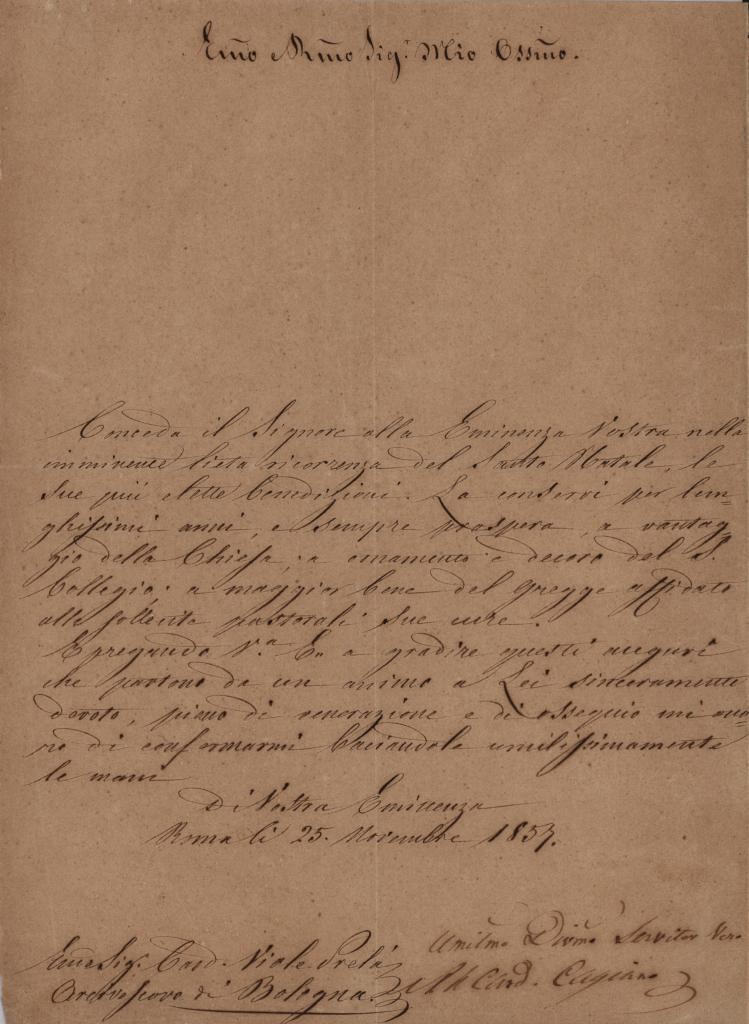 Emo e Rmo Sigr Mio Ossmo.
Conceda il Signore alla Eminenza Vostra nella
imminente lieta ricorrenza del Santo Natale, le
sue più elette benedizioni. La conservi per lun=
ghissimi anni, e sempre prospera, a vantag=
gio della Chiesa; a ornamento e decoro del S.
Collegio; a maggior bene del gregge affidato
alle sollecite pastorali sue cure.
E pregando Va. E. a gradire questi auguri
che partono da un animo a Lei sinceramente
devoto, pieno di venerazione e di ossequio mi ono=
ro di confermarmi baciandole umilissimamente
le mani
Di Vostra Eminenza
Roma li 25. Novembre 1857.
Umilmo Divmo Servitor Vero
Card. Cagiano
Emo Sigr. Card. Viale Prelà
Arcivescovo di Bologna.